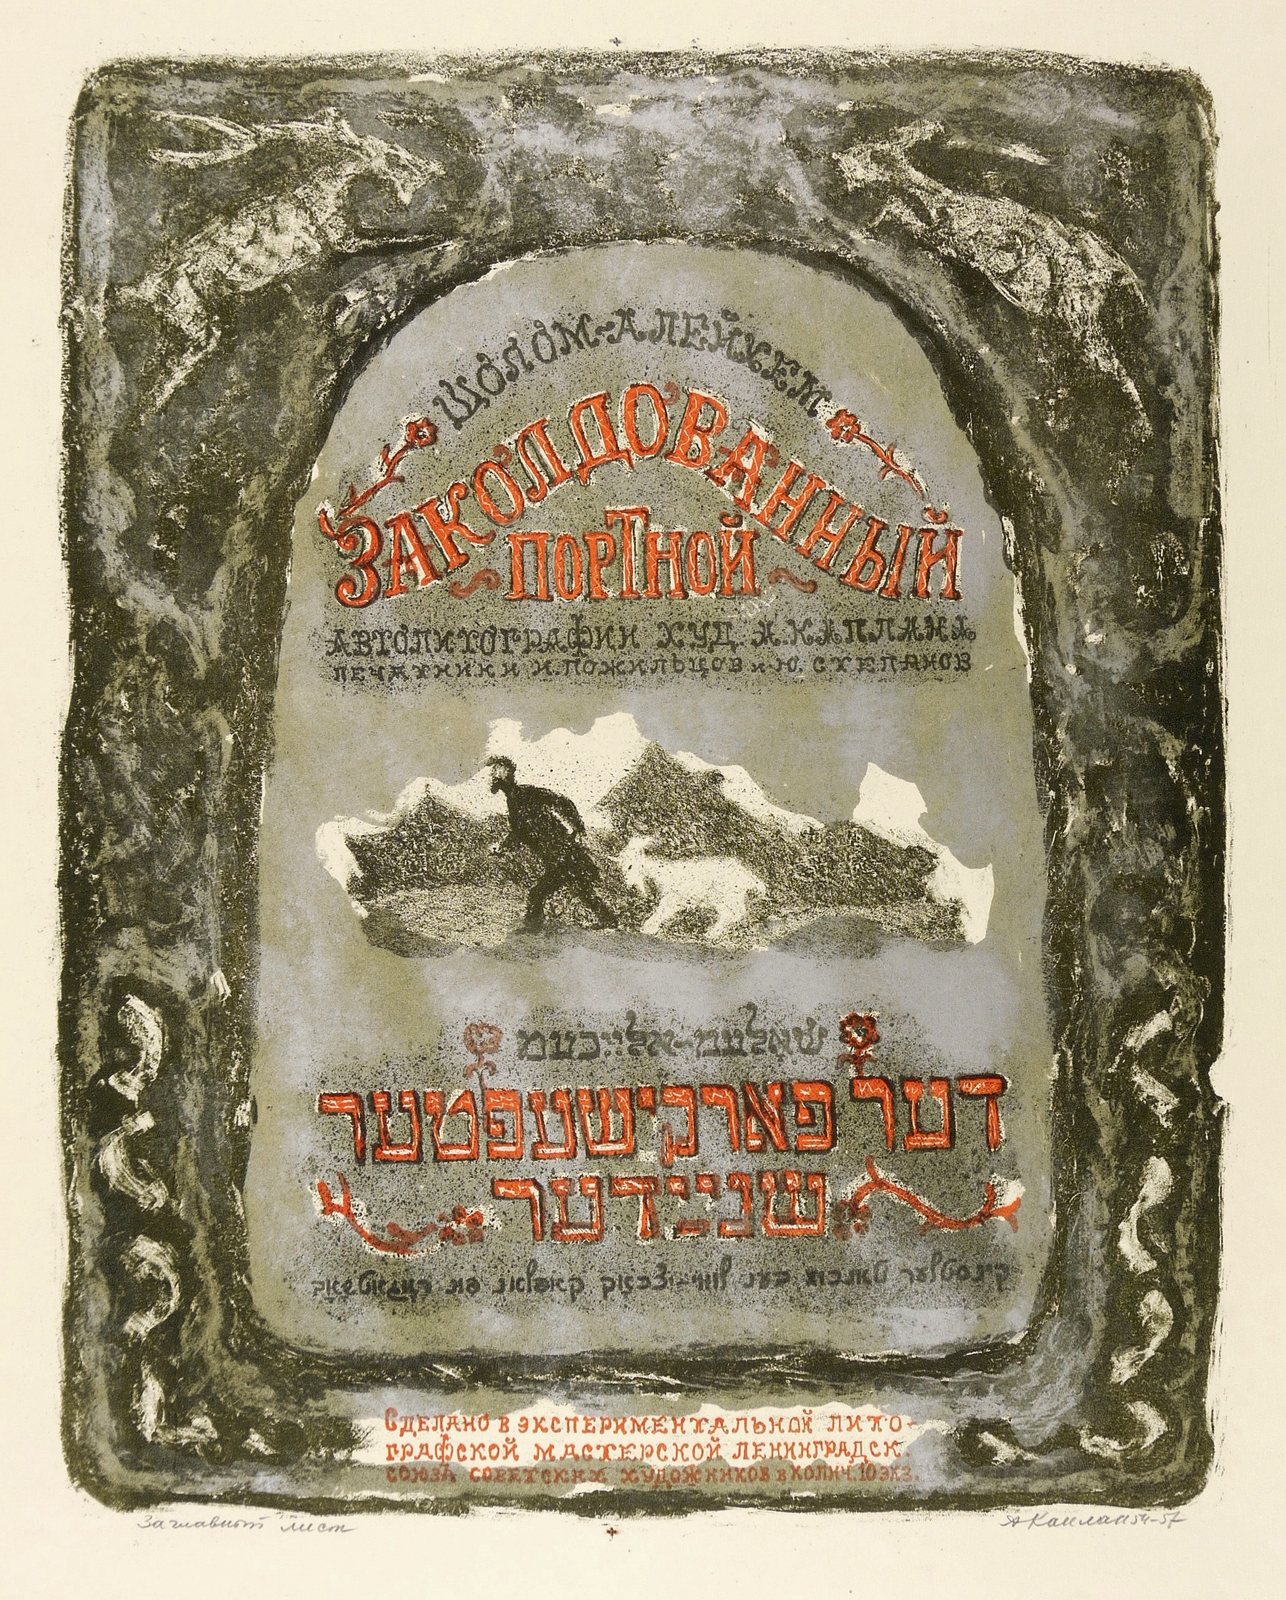 ШОЛОМ-АЛЕЙХЕМ
ЗАКОЛДОВАННЫЙ
ПОРТНОЙ
АВТОЛИТОГРАФИИ ХУД. А. КАПЛАНА
ПЕЧАТНИКИ И. ПОЖИЛЬЦОВ и Ю. СТЕПАНОВ
שאָלעם-אלייכעם
דער פארקישעפטער
שניידער
קינסטלער טאנכום בען לייווי-יצכאק קאפלאן פון ראגאטשאָוו
СДЕЛАНО В ЭКСПЕРИМЕНТАЛЬНОЙ ЛИТО-
ГРАФСКОЙ МАСТЕРСКОЙ ЛЕНИНГРАДСК.
СОЮЗА СОВЕТСКИХ ХУДОЖНИКОВ В КОЛИЧ. 10 ЭКЗ.
Заглавный лист
А Каплан 54-57